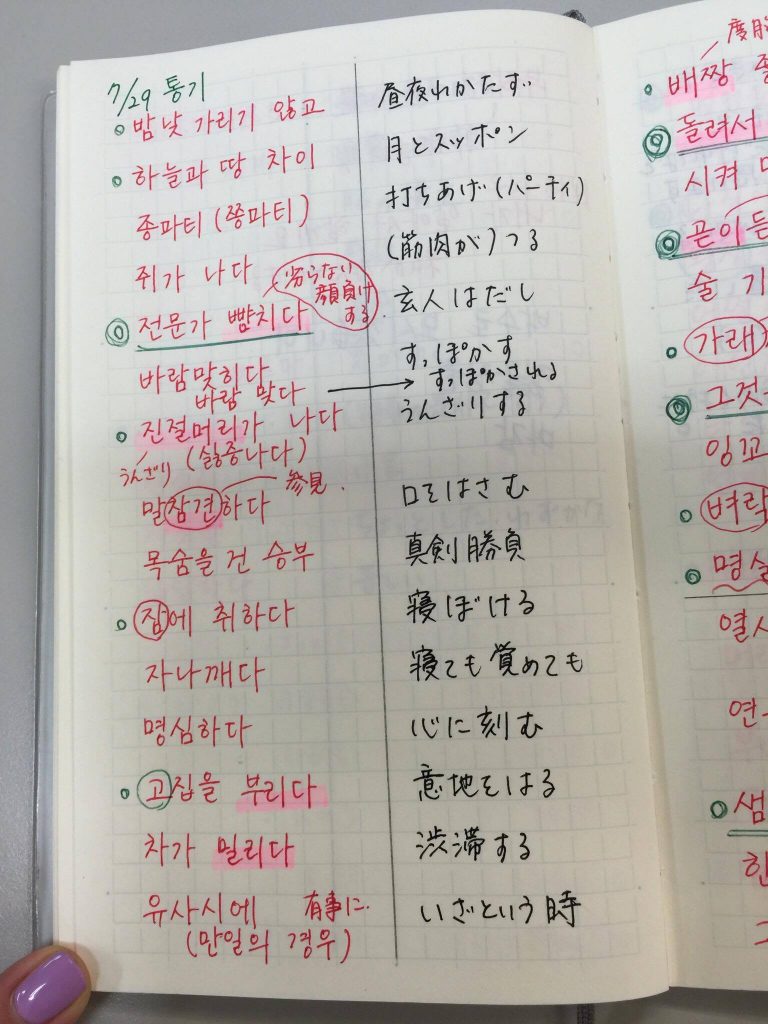 7/29 통기
밤낮 가리기 않고 昼夜わかたず
하늘과 땅 차이 月とスッポン
종파티 (쫑파티) 打ちあげ (パーティ)
쥐가 나다 (筋肉が) つる
劣らない
顔負け
する
전문가 뺨치다 玄人はだし
바람맞히다 すっぽかす
바람 맞다 → すっぽかされる
진절머리가 나다 うんざりする
うんざり (싫증나다)
参見.
말참견하다 口をはさむ
목숨을 건 승부 真剣勝負
잠에 취하다 寝ぼける
자나깨다 寝ても覚めても
명심하다 心に刻む
고집을 부리다 意地をはる
차가 밀리다 渋滞する
유사시에 有事に. いざという時
(만일의 경우)
배짱
돌려서
시켜
곧이
술
가래
그것
잉꼬
벼락
샘